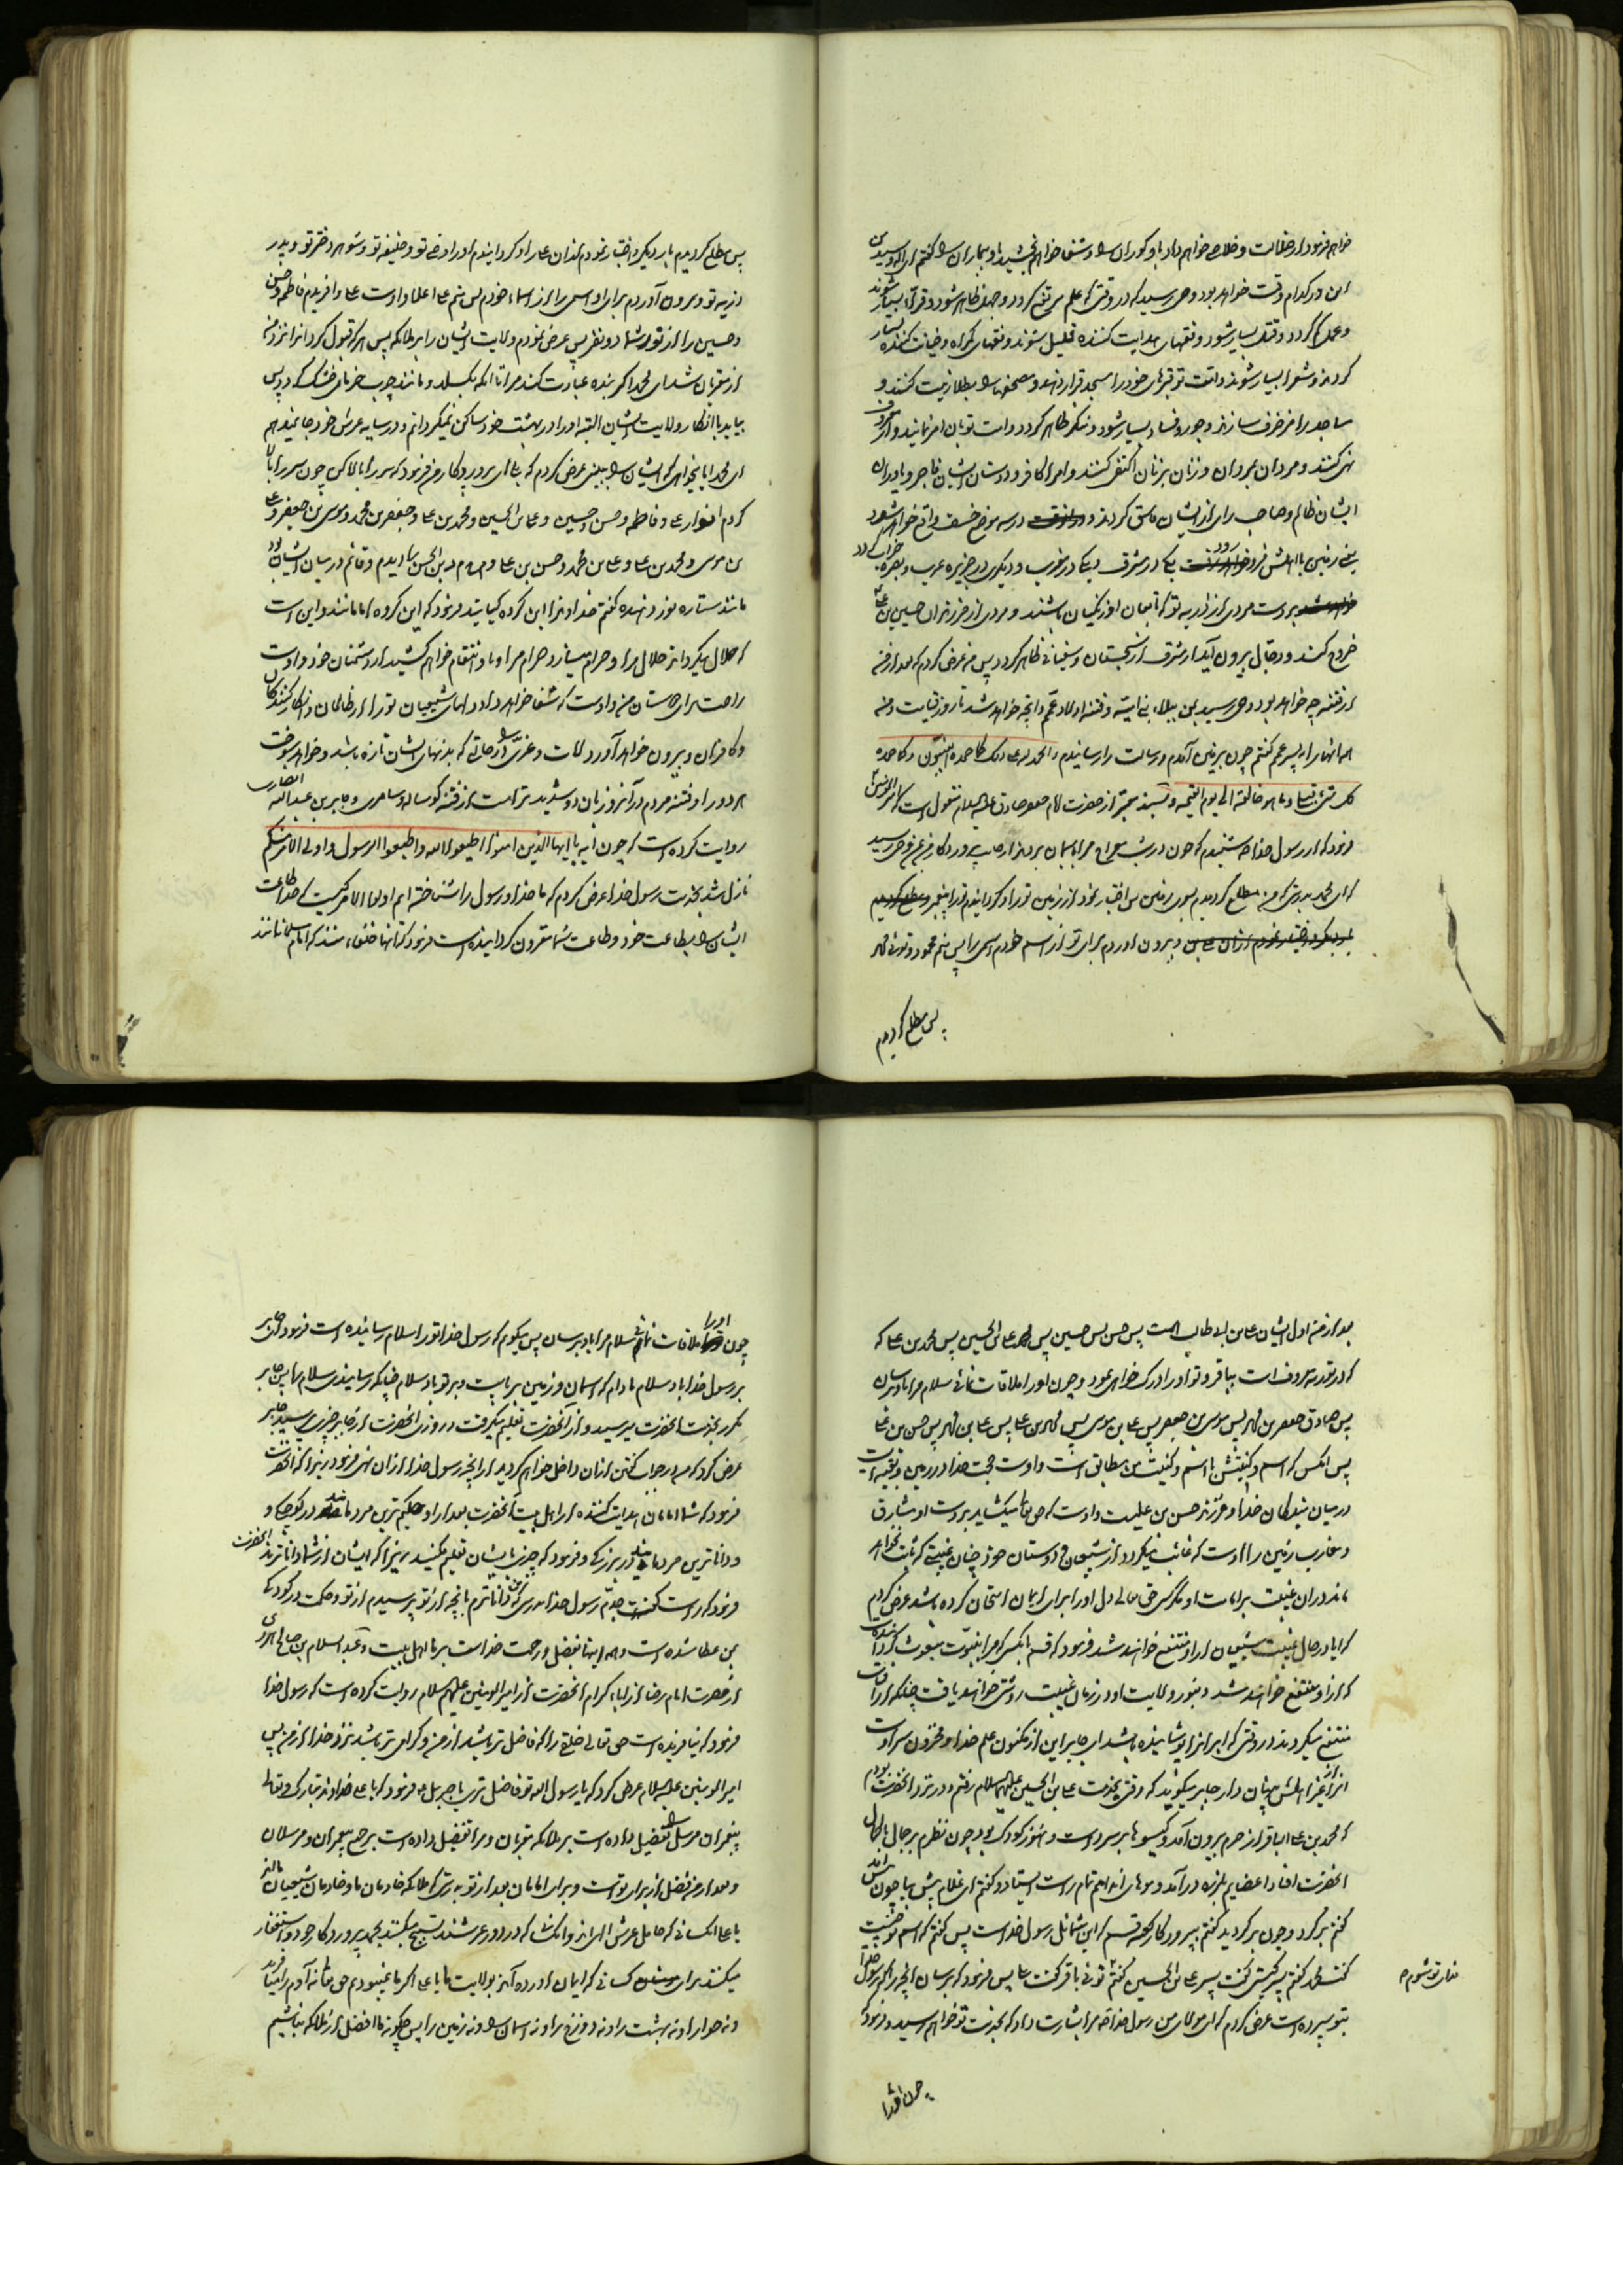 خواهم فرمود از ضلالت و خلاصی خواهم داد باو کوران را و شفا خواهم بخشید باو بیماران را گفتم ای اله و سید من
این در کدام وقت خواهد بود وحی رسید که در وقتی که علم مرتفع گردد و جهل ظاهر شود و قرآن بسیار شوند
و عمل کم گردد و قتل بسیار شود و فقهای هدایت کننده قلیل شوند و فقهای گمراه و خیانت کننده بسیار
گردند و شعرا بسیار شوند و امت تو قبرهای خود را مسجد قرار دهند و مصحفها را بطلا زینت کنند و
مساجد را مزخرف سازند و جور و فساد بسیار شود و منکر ظاهر گردد و امت تو بآن امر نمایند و از معروف
نهی کنند و مردان بمردان و زنان بزنان اکتفا کنند و امرا کافر و دوستان ایشان فاجر و یاوران
ایشان ظالم و صاحب رای از ایشان فاسق گردند و در سه موضع خسف واقع خواهد شد
یعنی زمین با اهلش فرو رود یکی در مشرق و یکی در مغرب و دیگری در جزیره عرب و بصره خراب گردد
بر دست مردی از ذریه تو که تابعان او زنگیان باشند و مردی از فرزندان حسین بن علی
خروج کند و دجال بیرون آید از مشرق از سجستان و سفیانی ظاهر گردد پس من عرض کردم که بعد از من
از فتنه چه خواهد بود وحی رسید بمن ببلاء بنی امیه و فتنه اولاد عمم و آنچه خواهد شد تا روز قیامت و من
همه آنها را به پسر عمم گفتم چون بزمین آمدم و رسالت را رسانیدم و الحمد لله علی ذلک کما حمده النبیون و کما حمده
کل شیء قبلی و ما هو خالقه الی یوم القیمه و بسند معتبر از حضرت امام جعفر صادق علیه السلام منقول است که امیر المؤمنین
فرمود که از رسول خدا ص شنیدم که چون در شب معراج مرا بآسمان بردند از جانب پروردگار من عز وجل وحی رسید
که ای محمد بدرستی که من مطلع گردیدم بسوی زمین پس اختیار نمودم از زمین تو را و گردانیدم تو را پیغمبر
و بیرون آوردم برای تو از اسم خودم اسمی را پس منم محمود و توئی محمد
پس مطلع گردیدم
پس مطلع گردیدم بار دیگر و اختیار نمودم از آن علی را و گردانیدم او را وصی تو و خلیفه تو و شوهر دختر تو و پدر
ذریه تو و بیرون آوردم برای او اسمی را از اسماء خودم پس منم علی اعلا و اوست علی و آفریدم فاطمه و حسن
و حسین را از نور شما دو نفر پس عرض نمودم ولایت ایشان را بر ملائکه پس هر که قبول کرد آنرا نزد من
از مقربان شد ای محمد اگر بنده عبادت کند مرا تا آنکه بگسلد و مانند چوب خرمای خشک گردد پس
بیاید با انکار ولایت ایشان البته او را در بهشت خود ساکن نمیگردانم و در سایه عرش خود جا نمیدهم
ای محمد ایا میخواهی که ایشان را ببینی عرض کردم که بلی ای پروردگار من فرمود که سر را بالا کن چون سر را بالا
کردم انوار علی و فاطمه و حسن و حسین و علی بن الحسین و محمد بن علی و جعفر بن محمد و موسی بن جعفر و علی
بن موسی و محمد بن علی و علی بن محمد و حسن بن علی و م ح م د بن الحسن را دیدم و قائم در میان ایشان بود
مانند ستاره نوز دهنده گفتم خداوندا این گروه کیانند فرمود که این گروه امامانند و این است
که حلال میگرداند حلال مرا و حرام میسازد حرام مرا و باو انتقام خواهم کشید از دشمنان خود و اوست
راحت برای دوستان من و اوست که شفا خواهد داد دلهای شیعیان تو را از ظالمان و انکار کنندگان
و کافران و بیرون خواهد آورد لات و عزی را در حالتی که بدنهای ایشان تازه باشد و خواهد سوخت
هر دو را و فتنه مردم در آن روز بآن دو شدیدتر است از فتنه گوساله و سامری و جابر بن عبد الله انصاری
روایت کرده است که چون آیه یا ایها الذین امنوا اطیعوا الله و اطیعوا الرسول و اولی الامر منکم
نازل شد بخدمت رسول خدا عرض کردم که ما خدا و رسول را شناخته ایم اولوا الامر کیست که خدا طاعت
ایشان را بطاعت خود و طاعت شما مقرون گردانیده است فرمود که آنها خلفاء منند که امام مسلمانانند
بعد از من اول ایشان علی بن ابی طالب است پس حسن پس حسین پس علی بن الحسین پس محمد بن علی که
که در توریه معروف است بباقر و تو او را درک خواهی نمود و چون او را ملاقات نمائی سلام مرا باو برسان
پس صادق جعفر بن محمد پس موسی بن جعفر پس علی بن موسی پس محمد بن علی پس علی بن محمد پس حسن بن علی
پس آنکس که اسم و کنیتش با اسم و کنیت من مطابق است و اوست حجت خدا در زمین و بقیه اوست
در میان بندگان خدا و فرزند حسن بن علیست و اوست که حق تعالی میگشاید بر دست او مشارق
و مغارب زمین را و اوست که غائب میگردد از شیعیان و دوستان خود چنان غیبتی که ثابت نخواهد
ماند در آن غیبت بر امامت او مگر کسی که حق تعالی دل او را برای ایمان امتحان کرده باشد عرض کردم
که ایا در حال غیبت شیعیان از او منتفع خواهند شد فرمود که قسم بآنکسی که مرا بنبوت مبعوث گردانیده
که از او منتفع خواهند شد و بنور ولایت او در زمان غیبت روشنی خواهند یافت چنانکه از آفتاب
منتفع میگردند در وقتی که ابر آنرا پوشانیده باشد ای جابر این از مکنون علم خدا و مخزون سر اوست
آنرا از غیر اهلش پنهان دار جابر میگوید که وقتی بخدمت علی بن الحسین علیهم السلام رفتم و در نزد آنحضرت بودم
که محمد بن علی الباقر از حرم بیرون آمد و گیسوها بر سر داشت و هنوز کودک بود چون نظرم بر جمال با کمال
آنحضرت افتاد اعضایم بلرزه در آمد و موهای اندامم تمام راست ایستاد و گفتم ای غلام پیش بیا چون پیش آمد
گفتم برگرد و چون برگردید گفتم بپروردگار کعبه قسم که این شمائل رسول خداست پس گفتم که اسم تو چیست
گفت محمد گفتم پسر کیستی گفت پسر علی بن الحسین گفتم توئی باقر گفت بلی پس فرمود که برسان آنچه را که رسول خدا
فدای تو شوم
بتو سپرده است عرض کردم که ای مولای من رسول خدا ص مرا بشارت داد که بخدمت تو خواهم رسید و فرمود که
چون او را
چون او را ملاقات نمائی سلام مرا باو برسان پس میگویم که رسول خدا تو را سلام رسانیده است فرمود که ای جابر
بر رسول خدا باد سلام مادام که آسمان و زمین برپاست و بر تو باد سلام چنانکه رسانیدی سلام را پس جابر
مکرر بخدمت آنحضرت میرسید و از آنحضرت تعلیم میگرفت در روزی آنحضرت از جابر چیزی پرسید جابر
عرض کرد که من در جواب گفتن از آن داخل نخواهم گردید از آنچه رسول خدا از آن نهی فرمود زیرا که آنحضرت
فرمود که شما امامان هدایت کننده از اهل بیت آنحضرت بعد از او و حکیم ترین مردمانید در کوچکی و
و داناترین مردمانید در بزرگی و فرمود که چیزی بایشان تعلیم مکنید زیرا که ایشان از شما داناترند آنحضرت
فرمود که راست گفت جدم رسول خدا بدرستی که من داناترم بآنچه از تو پرسیدم از تو و حکمت در کودکی
بمن عطا شده است و همه اینها بفضل و رحمت خداست بر ما اهل بیت و عبد السلام بن صالح هروی
از حضرت امام رضا از آباء کرام آنحضرت از امیر المومنین علیهم السلام روایت کرده است که رسول خدا
فرمود که نیافریده است حق تعالی خلقی را که فاضل تر باشد از من و گرامی تر باشد نزد خدا از من پس
امیر المومنین علیه السلام عرض کرد که یا رسول الله تو فاضل تری یا جبرئیل فرمود که یا علی خداوند تبارک و تعالی
پیغمبران مرسل را تفضیل داده است بر ملائکه مقربان و مرا تفضیل داده است بر جمیع پیغمبران و مرسلان
و بعد از من فضل از برای تو است و برای امامان بعد از تو بدرستی که ملائکه خادمان ما و خادمان شیعیان مااند
یا علی آنکسانی که حامل عرش الهی اند و آنکسانی که در دور عرشند تسبیح میکنند بحمد پروردگار خود و استغفار
میکنند برای کسانی که ایمان آورده اند بولایت ما یا علی اگر ما نمیبودیم حق تعالی نه آدم را میآفرید
و نه حوا را و نه بهشت را و نه دوزخ را و نه آسمان را و نه زمین را پس چگونه ما افضل از ملائکه نباشیم